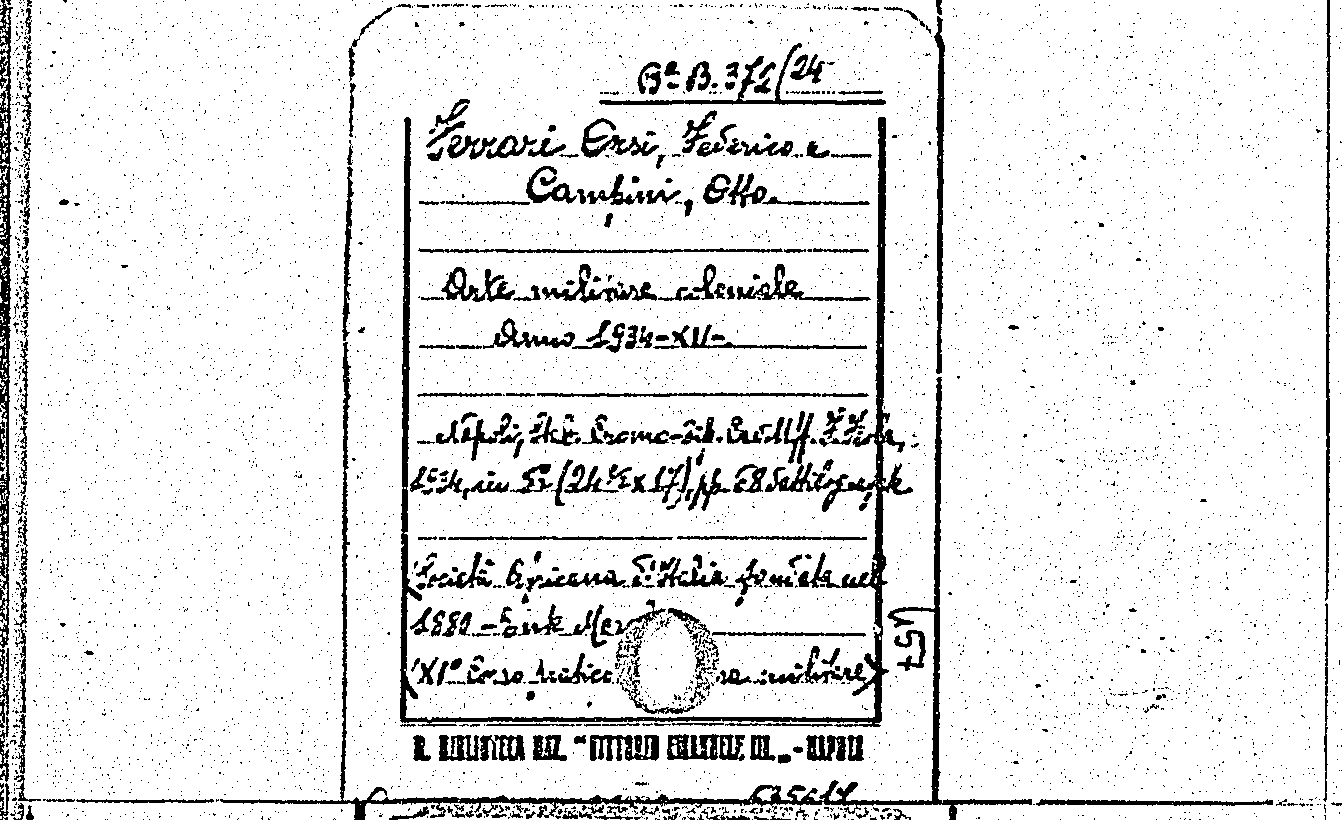 Bª B. 372(24
Ferrari Orsi, Federico e
Cambini, Otto.
Arte militare coloniale
Anno 1934-XII-.
Napoli, Stab. Cromo-Tip. Edit. F.
1934, in 8º (24 ½ x 17), pp. 68
(Società Africana d'Italia fondata nel
1880 - Ente
(XIº Corso pratico militare)
R. BIBLIOTECA NAZ. "VITTORIO EMANUELE III" - NAPOLI